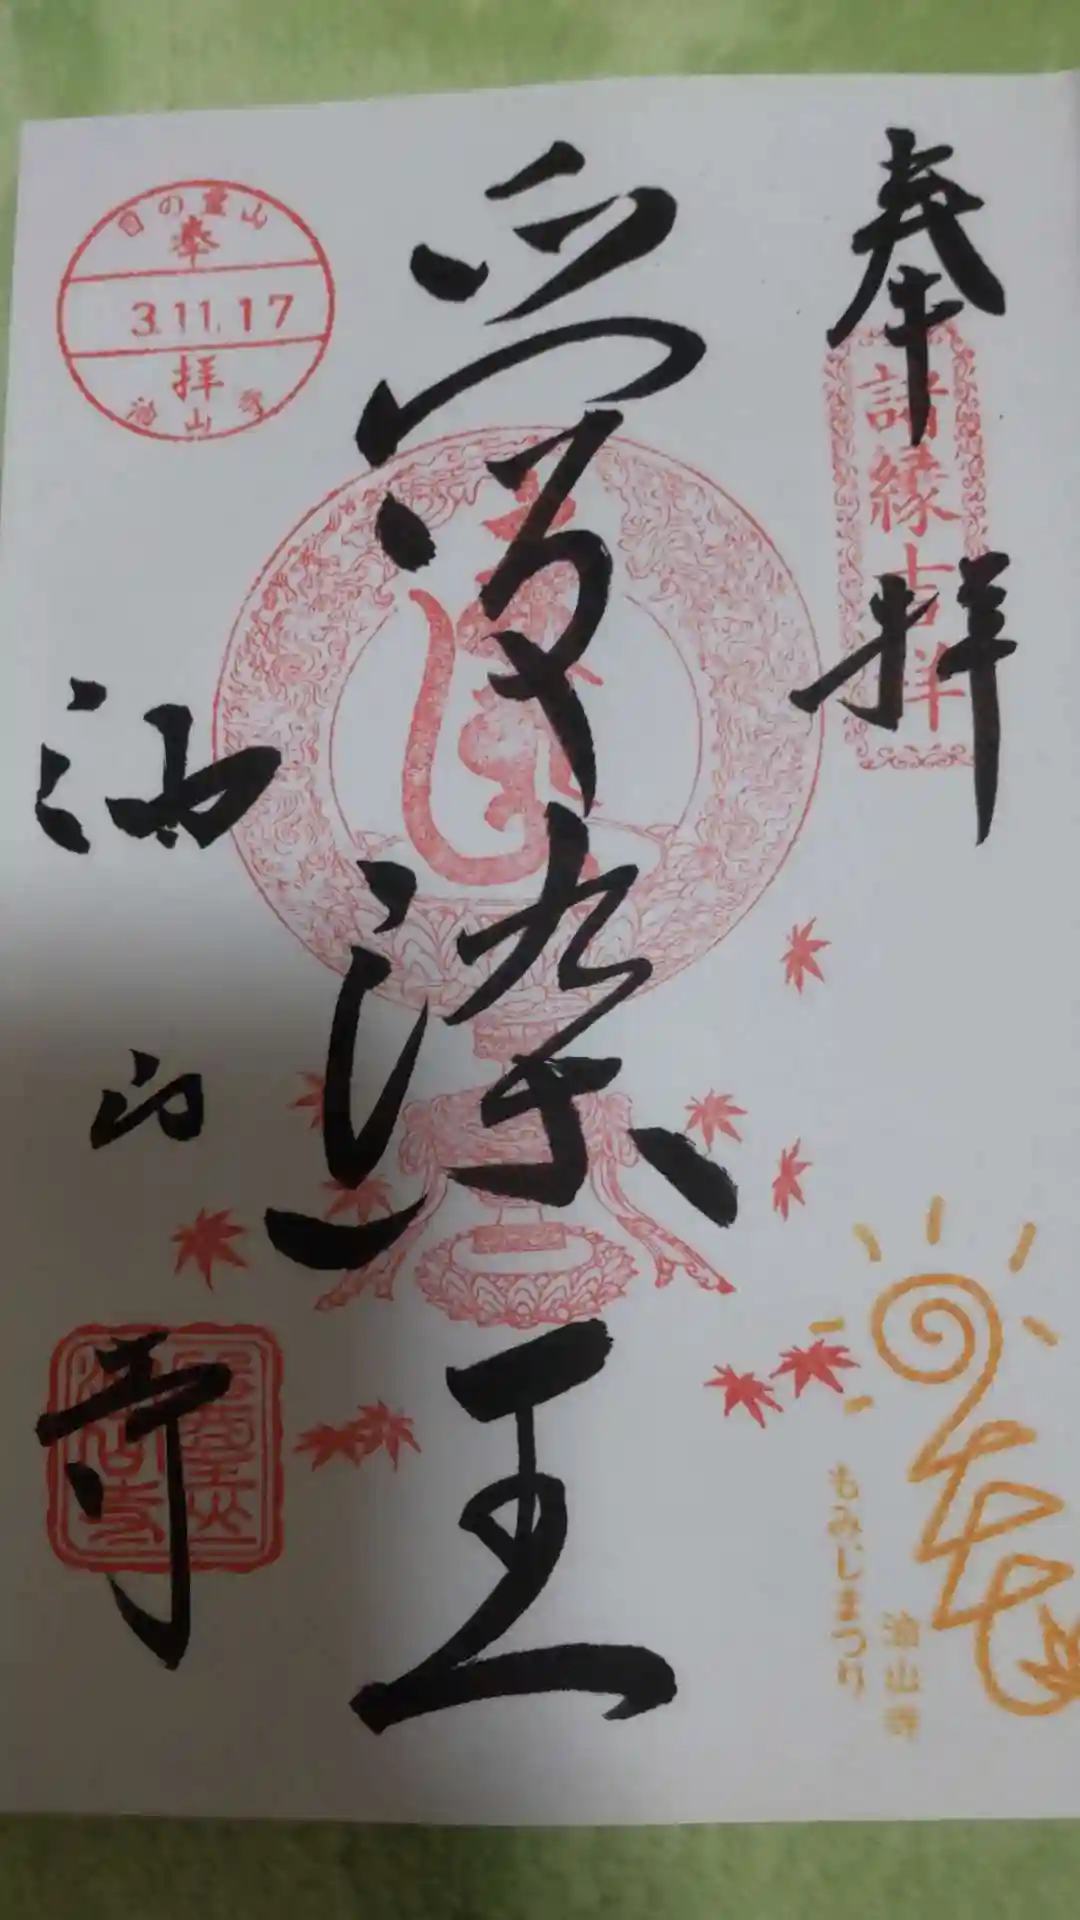 奉拝
諸縁吉祥
愛染王
油山寺
目の霊山
奉
3.11.17
拝
油山寺
もみじまつり
油山寺